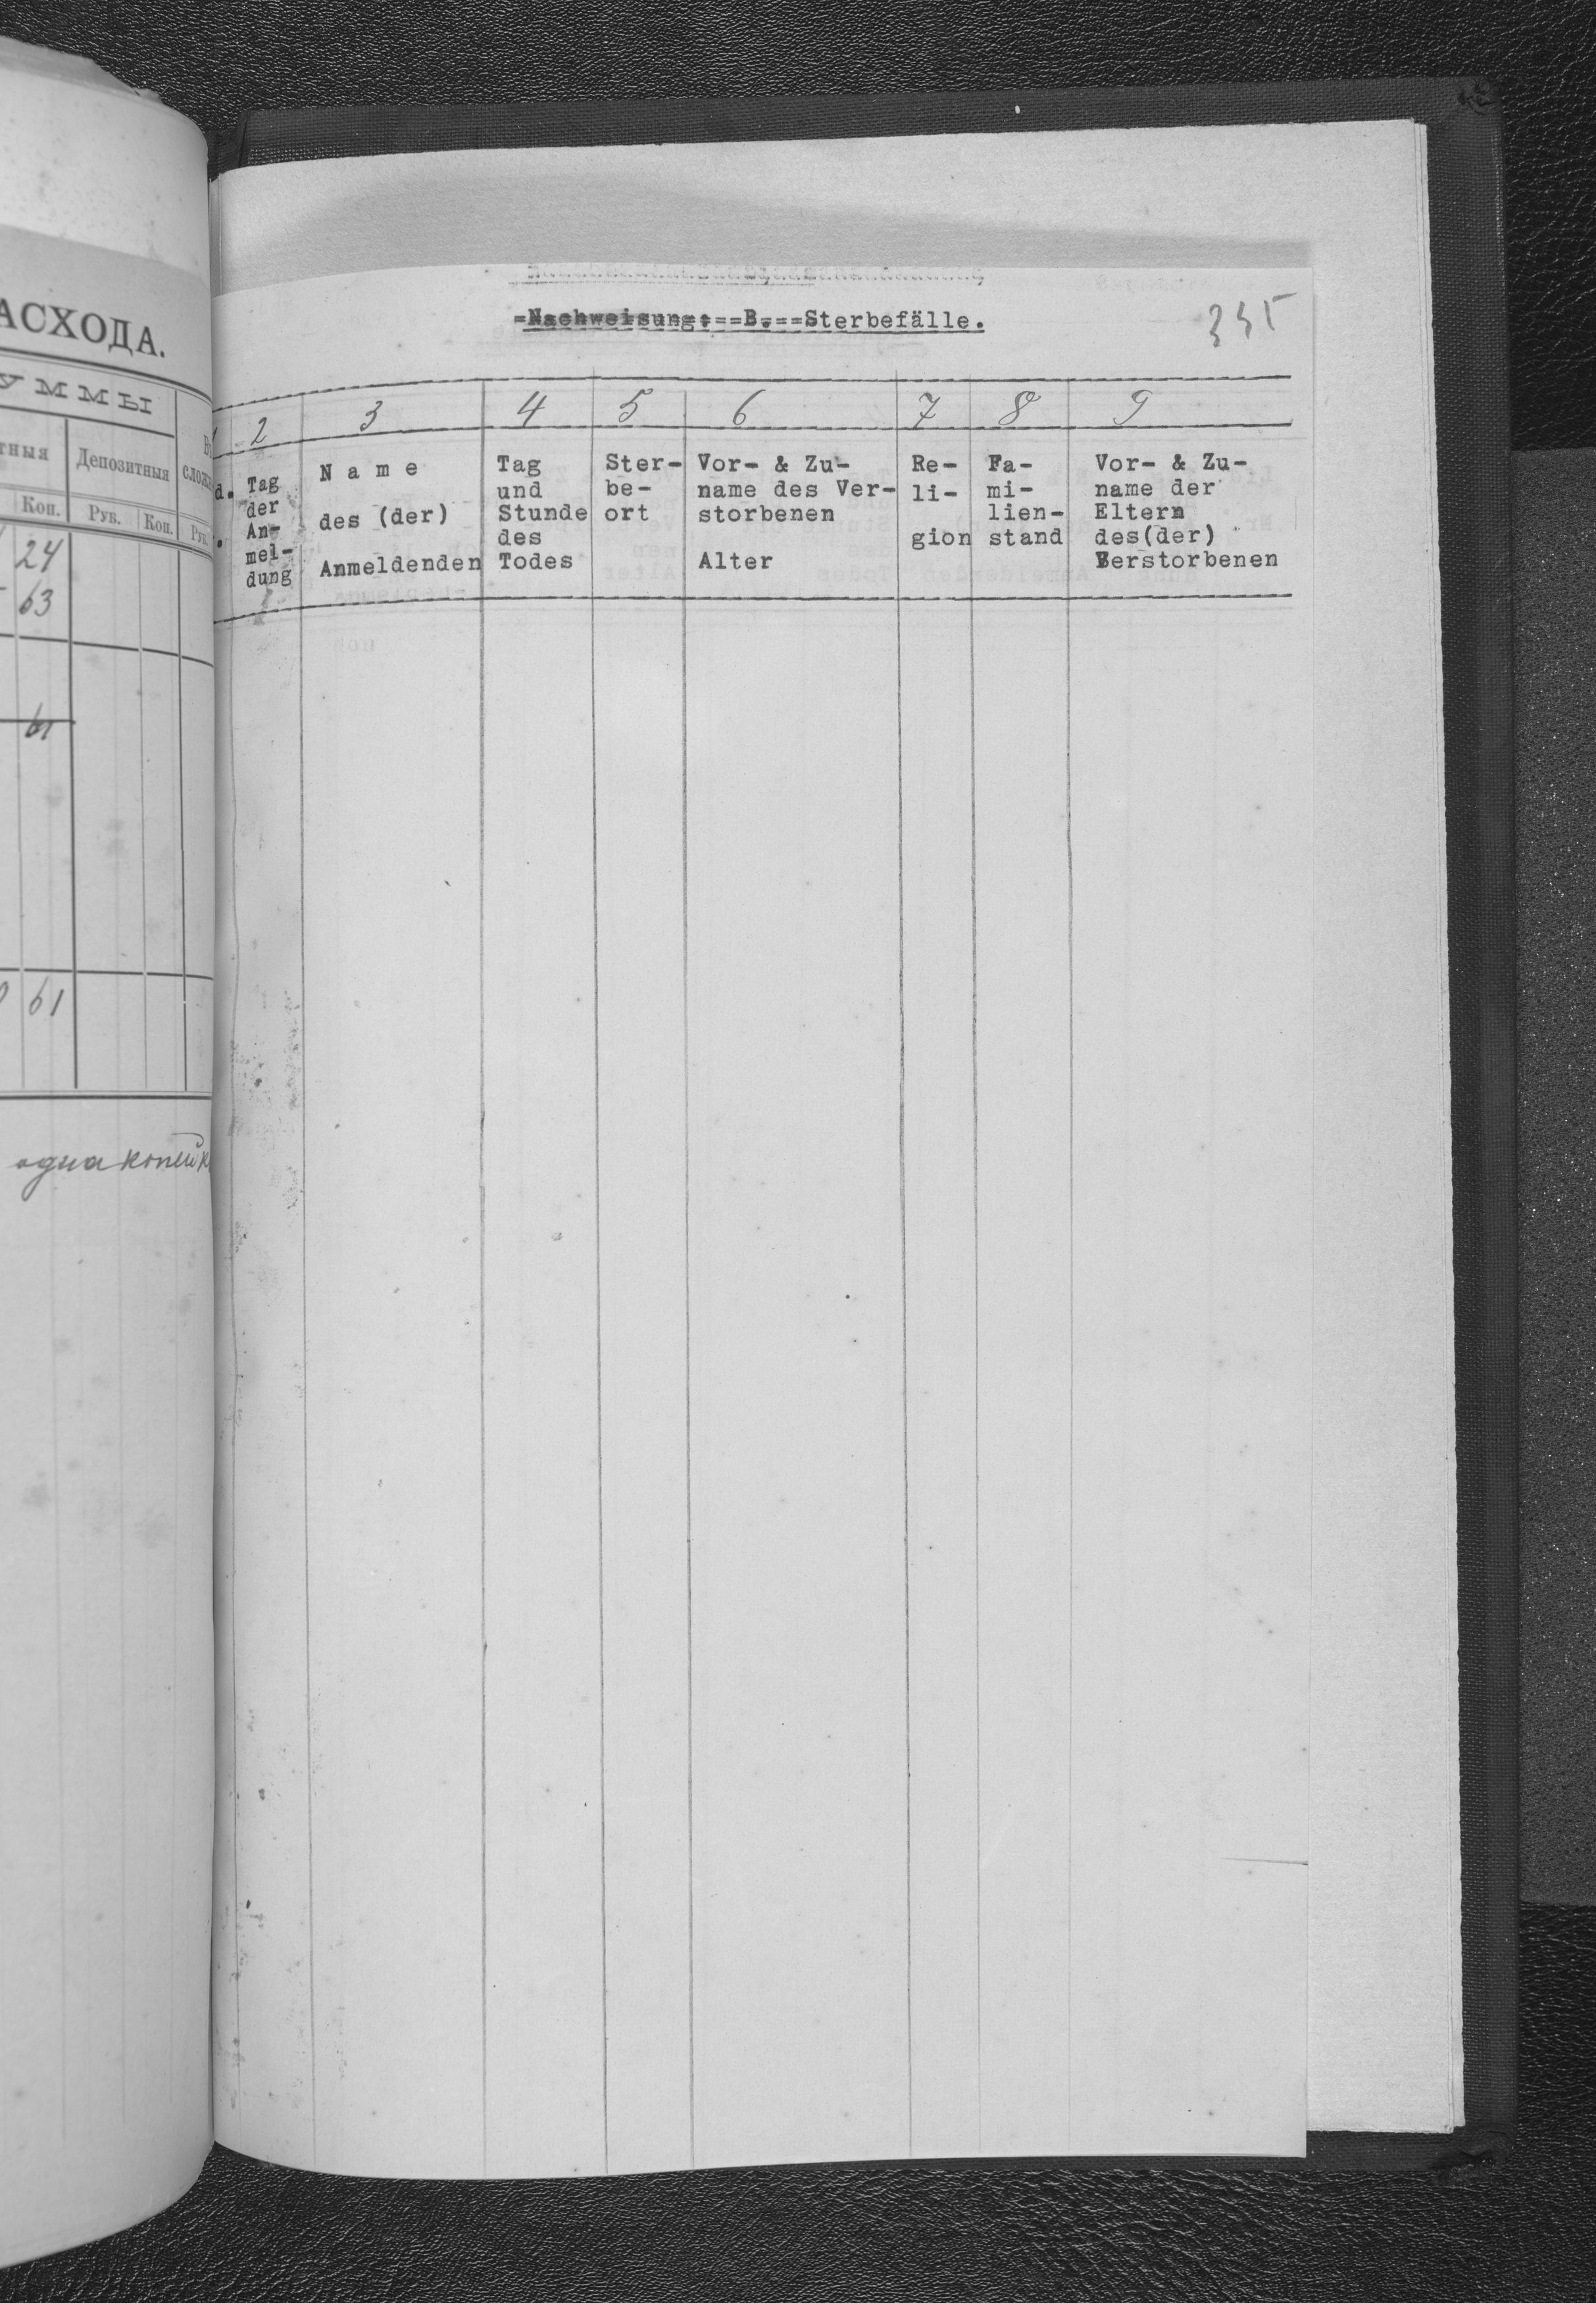 АСХОДА.
УММЫ
тныя
Депозитныя
Коп.
Руб.
Коп.
24
63
61
61
одна копейк
=Nachweisung:==B.==Sterbefälle.
2 3 4 5 6 7 8 9
d.
Tag
der
An-
mel-
dung
Name
des (der)
Anmeldenden
Tag
und
Stunde
des
Todes
Ster-
be-
ort
Vor- & Zu-
name des Ver-
storbenen
Alter
Re-
li-
gion
Fa-
mi-
lien-
stand
Vor- & Zu-
name der
Eltern
des(der)
Verstorbenen